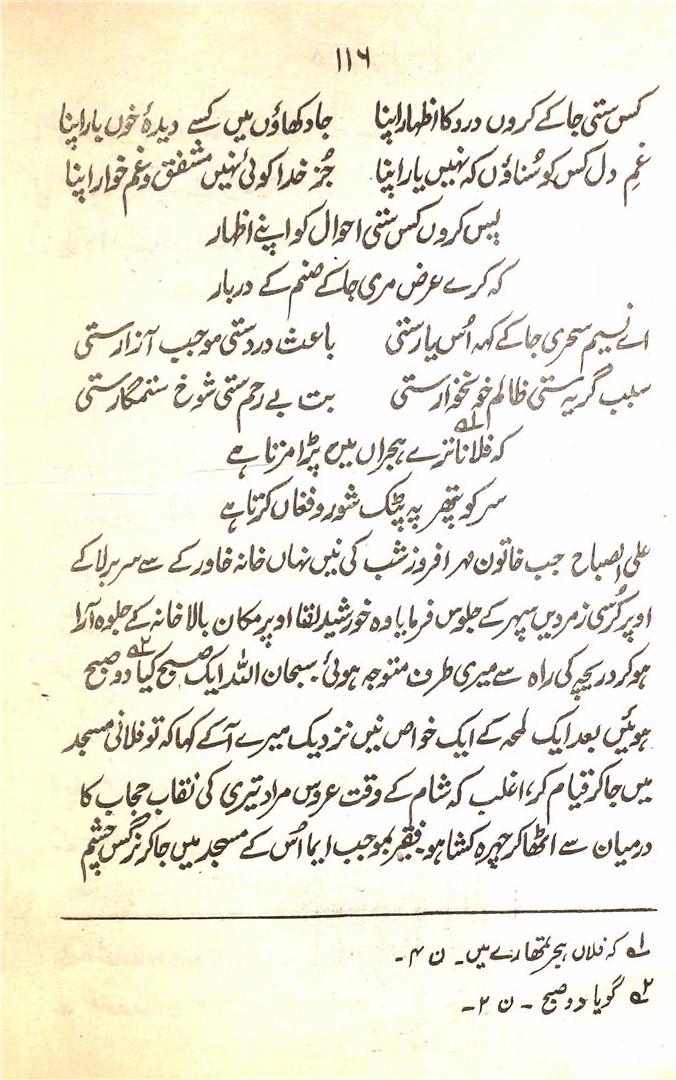 ۱۱۶
کس ستی جا کے کروں درد کا اظہار اپنا جا دکھاؤں میں کسے دیدۂ خوں بار اپنا
غمِ دل کس کو سُناؤں کہ نہیں یار اپنا جُز خدا کوئی نہیں مشفق و غم خوار اپنا
پس کروں کس ستی احوال کو اپنے اظہار
کہ کرے عرض مری جا کے صنم کے دربار
اے نسیم سحری جا کے کہہ اُس یار ستی باعث درد ستی موجب آزار ستی
سبب گریہ ستی ظالم خونخوار ستی بت بے رحم ستی شوخ ستمگار ستی
کہ فلانا ترے ہجراں میں ۱؎ پڑا مرتا ہے
سر کو پتھر پہ پٹک شور و فغاں کرتا ہے
علی الصباح جب خاتون مہر افروز شب کی نیں نہاں خانہ خاور کے سے سر برلا کے
اوپر کُرسی زمردیں سپہر کے جلوس فرمایا وہ خورشید لقا اوپر مکان بالا خانہ کے جلوہ آرا
ہو کر دریچہ کی راہ سے میری طرف متوجہ ہوئی۔ سبحان اللہ ایک صبح کیا ۲؎ دو صبح
ہوئیں بعد ایک لمحہ کے ایک خواص نیں نزدیک میرے آ کے کہا کہ تو فلانی مسجد
میں جا کر قیام کر، اغلب کہ شام کے وقت عروس مراد تیری کی نقاب حجاب کا
درمیان سے اٹھا کر چہرہ کشا ہو۔ فقیر بموجب ایما اُس کے مسجد میں جا کر نرگس چشم
۱؎ کہ فلاں ہجر تمھارے میں۔ ن ۴۔
۲؎ گویا دو صبح ۔ ن ۲۔